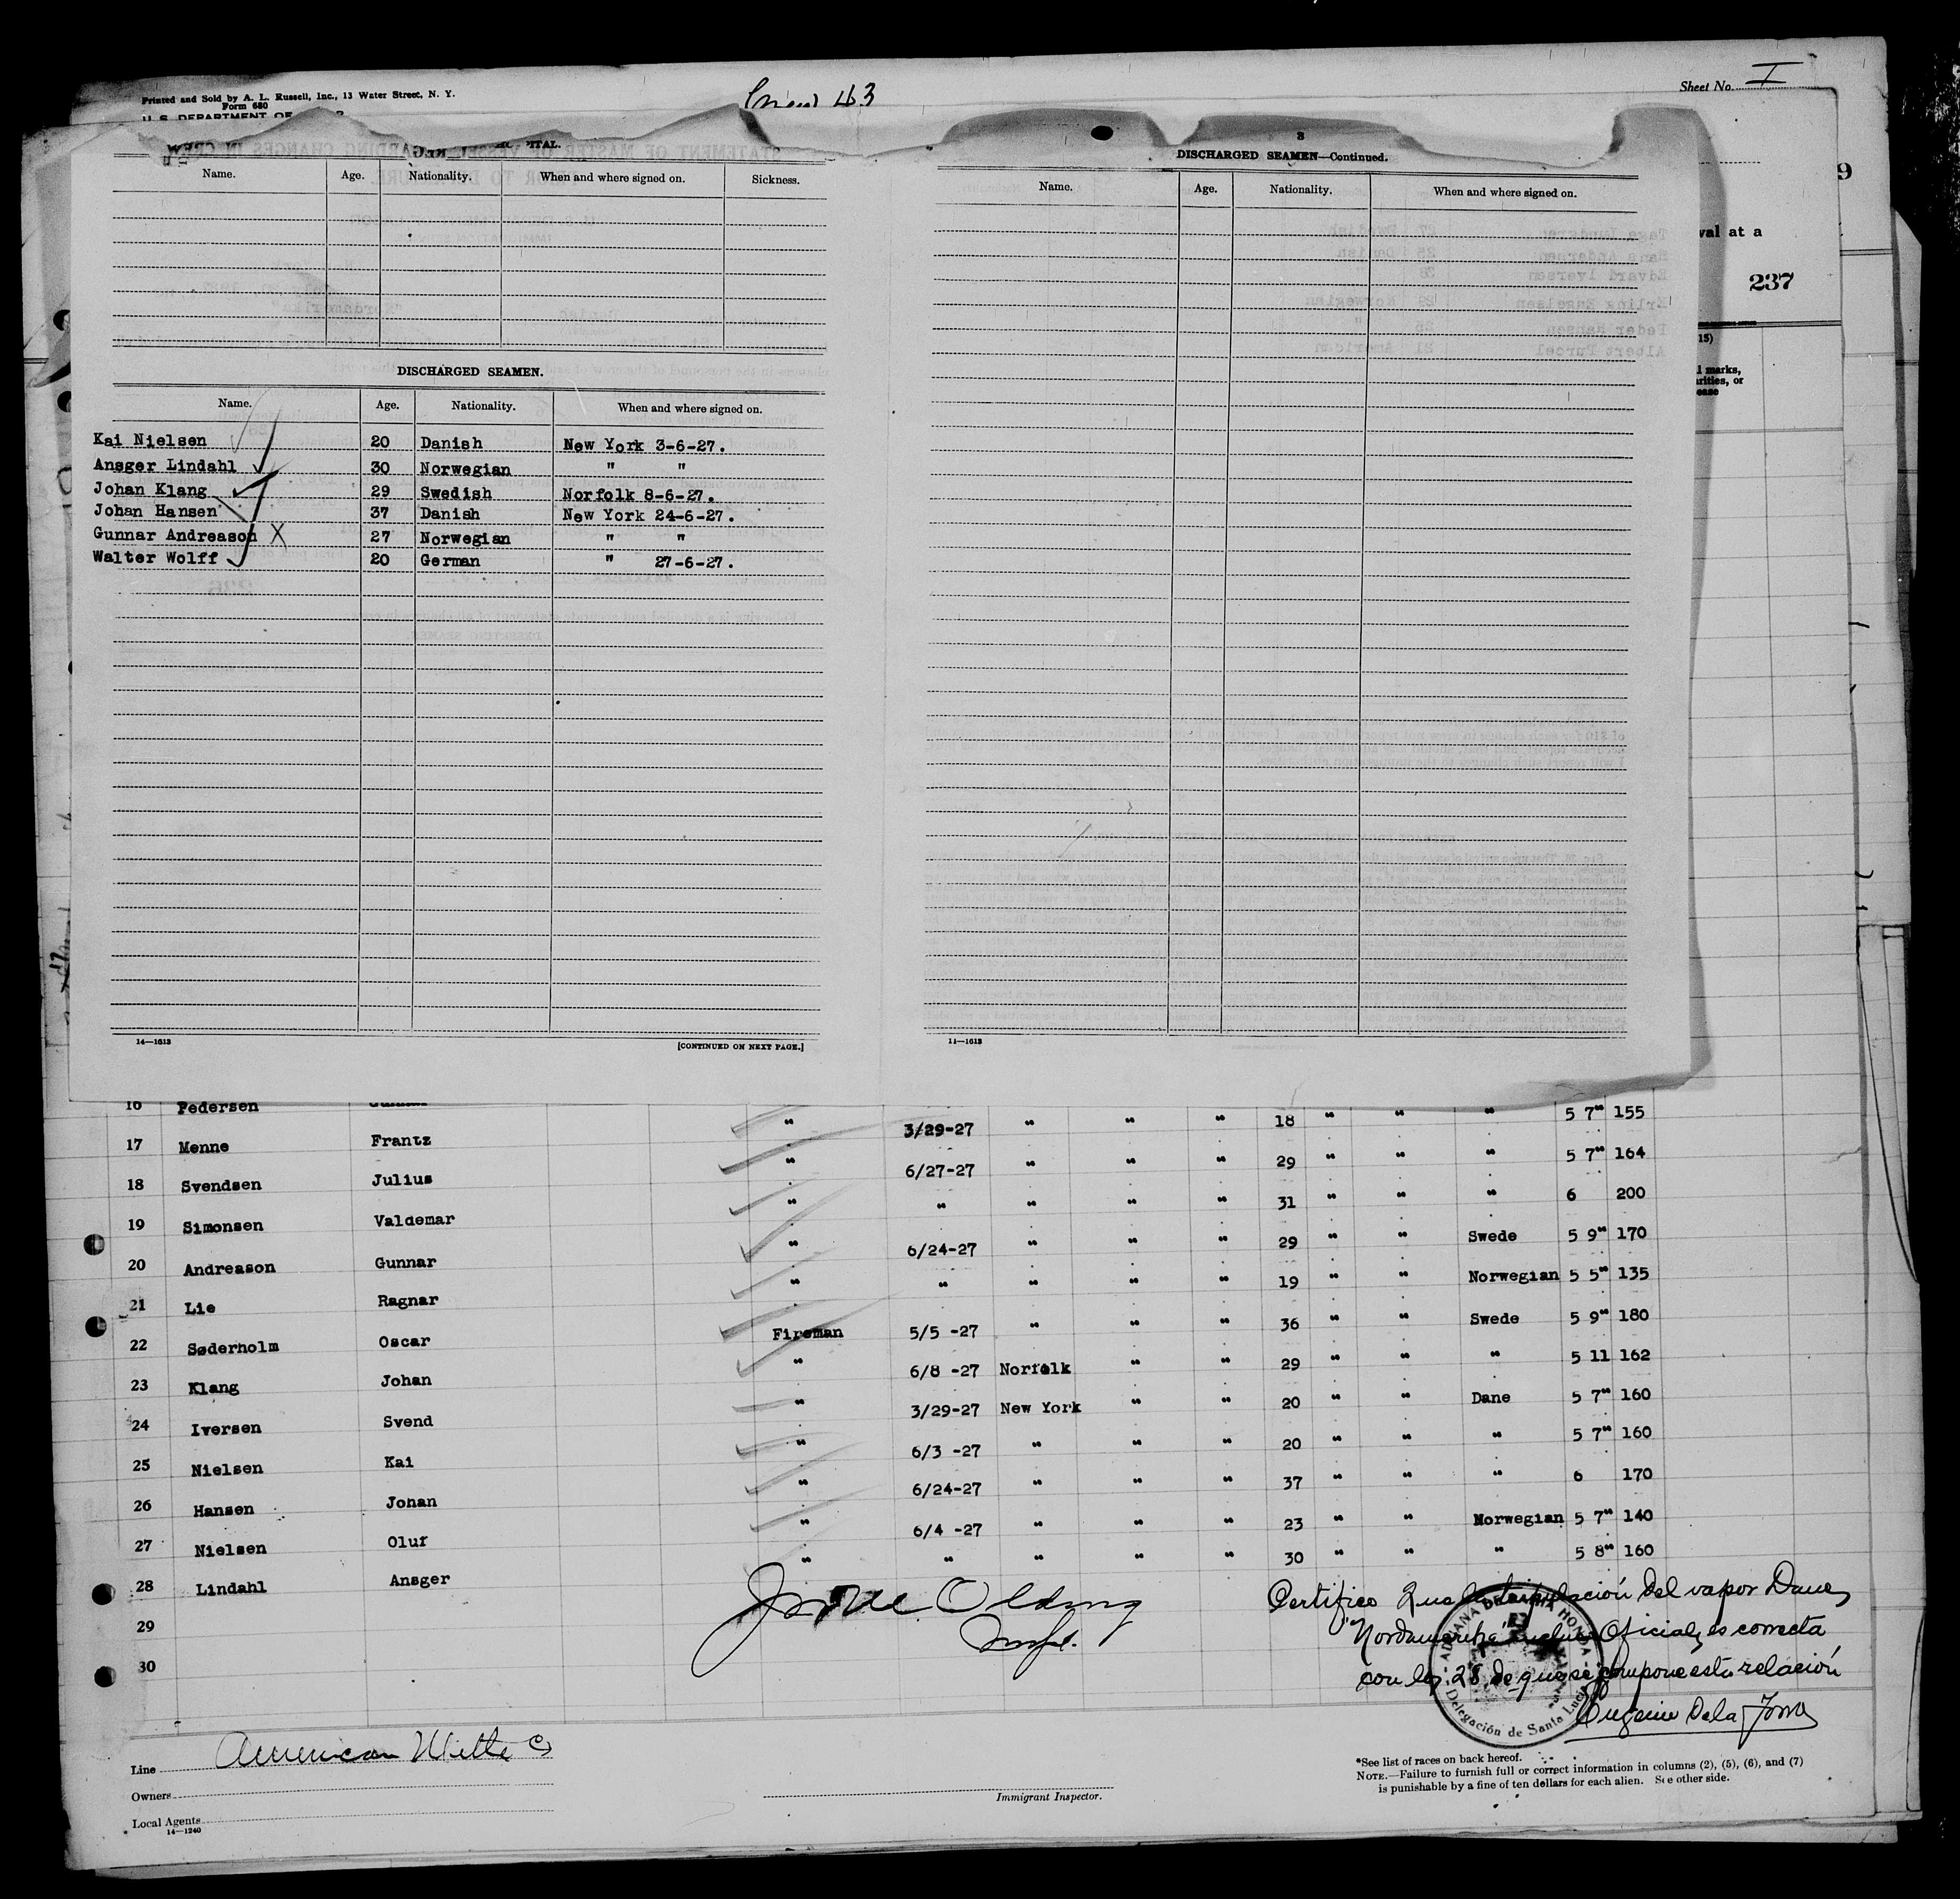 Printed and Sold by A. L. Russell, Inc., 13 Water Street, N. Y.
Form 680
U. S. DEPARTMENT OF
Sheet No. I
9
val at a
237
15)
l marks,
arities, or
ease
PITAL.
Name. Age. Nationality. When and where signed on. Sickness.
DISCHARGED SEAMEN.
Name. Age. Nationality. When and where signed on.
Kai Nielsen 20 Danish New York 3-6-27.
Ansger Lindahl 30 Norwegian " "
Johan Klang 29 Swedish Norfolk 8-6-27.
Johan Hansen 37 Danish New York 24-6-27.
Gunnar Andreason X 27 Norwegian " "
Walter Wolff 20 German " 27-6-27.
14—1613 [CONTINUED ON NEXT PAGE.]
3
DISCHARGED SEAMEN—Continued.
Name. Age. Nationality. When and where signed on.
14—1613
16 Pedersen " 3/29-27 " " " 18 " " " 5 7" 155
17 Menne Frantz " 6/27-27 " " " 29 " " " 5 7" 164
18 Svendsen Julius " " " " " 31 " " " 6 200
19 Simonsen Valdemar " 6/24-27 " " " 29 " " Swede 5 9" 170
20 Andreason Gunnar " " " " " 19 " " Norwegian 5 5" 135
21 Lie Ragnar Fireman 5/5 -27 " " " 36 " " Swede 5 9" 180
22 Søderholm Oscar " 6/8 -27 Norfolk " " 29 " " " 5 11 162
23 Klang Johan " 3/29-27 New York " " 20 " " Dane 5 7" 160
24 Iversen Svend " 6/3 -27 " " " 20 " " " 5 7" 160
25 Nielsen Kai " 6/24-27 " " " 37 " " " 6 170
26 Hansen Johan " 6/4 -27 " " " 23 " " Norwegian 5 7" 140
27 Nielsen Oluf " " " " " 30 " " " 5 8" 160
28 Lindahl Ansger
29
30
Certifico Que la tripulación del vapor Danes
"Nordamerika" Oficiales es correcta
con los 28 de que se compone esta relación
Eugenio de la Torre
ADUANA DE BAHIA HONDA
Delegación de Santa Lucia
Line American
Owners
Local Agents
14—1240
Immigrant Inspector.
*See list of races on back hereof.
NOTE.—Failure to furnish full or correct information in columns (2), (5), (6), and (7)
is punishable by a fine of ten dollars for each alien. See other side.